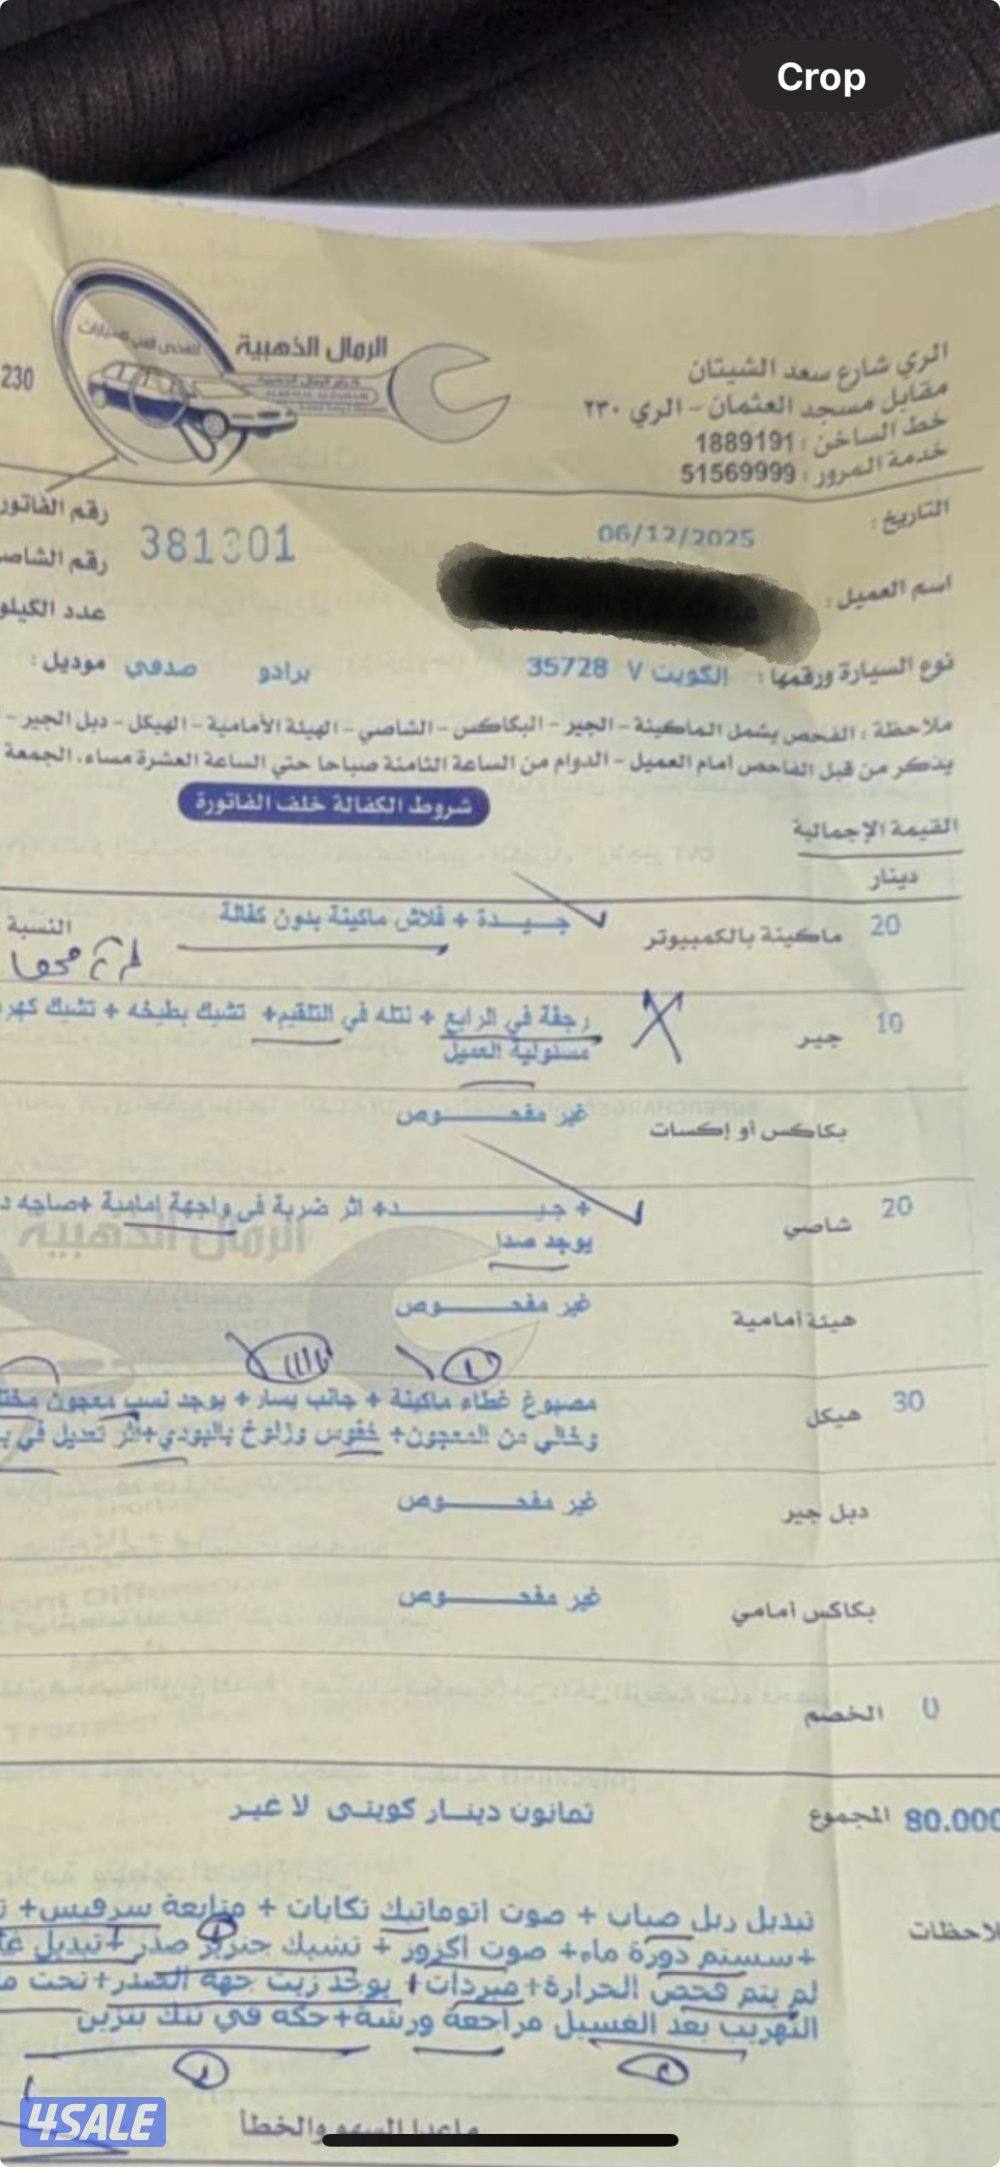 Crop
الرمال الذهبية
للفحص الفني للسيارات
230
الري شارع سعد الشيتان
مقابل مسجد العثمان - الري ٢٣٠
خط الساخن : 1889191
خدمة المرور : 51569999
التاريخ : 06/12/2025
رقم الفاتور
381301
رقم الشاصي
اسم العميل :
عدد الكيلو
نوع السيارة ورقمها : الكويت 7 35728 برادو صدفي موديل :
ملاحظة : الفحص يشمل الماكينة - الجير - البكاكس - الشاصي - الهيئة الأمامية - الهيكل - دبل الجير -
يذكر من قبل الفاحص أمام العميل - الدوام من الساعة الثامنة صباحا حتي الساعة العشرة مساء، الجمعة
شروط الكفالة خلف الفاتورة
القيمة الإجمالية
دينار
20 ماكينة بالكمبيوتر جيـــدة + فلاش ماكينة بدون كفالة النسبة :
10 جير رجفة في الرابع + نتله في التلقيم+ تشيك بطيخه + تشيك كهر
مسئولية العميل
بكاكس أو إكسات غير مفحــــوص
20 شاصي + جيــــــد+ اثر ضربة فى واجهة امامية +صاجه
يوجد صدا
هيئة أمامية غير مفحــــوص
30 هيكل مصبوغ غطاء ماكينة + جانب يسار + يوجد نسب معجون
وخالي من المعجون+ خفوس وزلوخ بالبودي+اثر تعديل في
دبل جير غير مفحــــوص
بكاكس أمامي غير مفحــــوص
0 الخصم
80.000 المجموع ثمانون دينــار كويتى لا غيـر
لاحظات تبديل ربل صباب + صوت اتوماتيك تكايات + متابعة سرفيس+
+سستم دورة ماء+ صوت اكزوز + تشيك جنزير صدر +تبديل
لم يتم فحص الحرارة+مبردات+ يوجد زيت جهة الصدر+تحت
التهريب بعد الغسيل مراجعة ورشة+حكه في تنك بنزين
ماعدا السهو والخطأ
4SALE